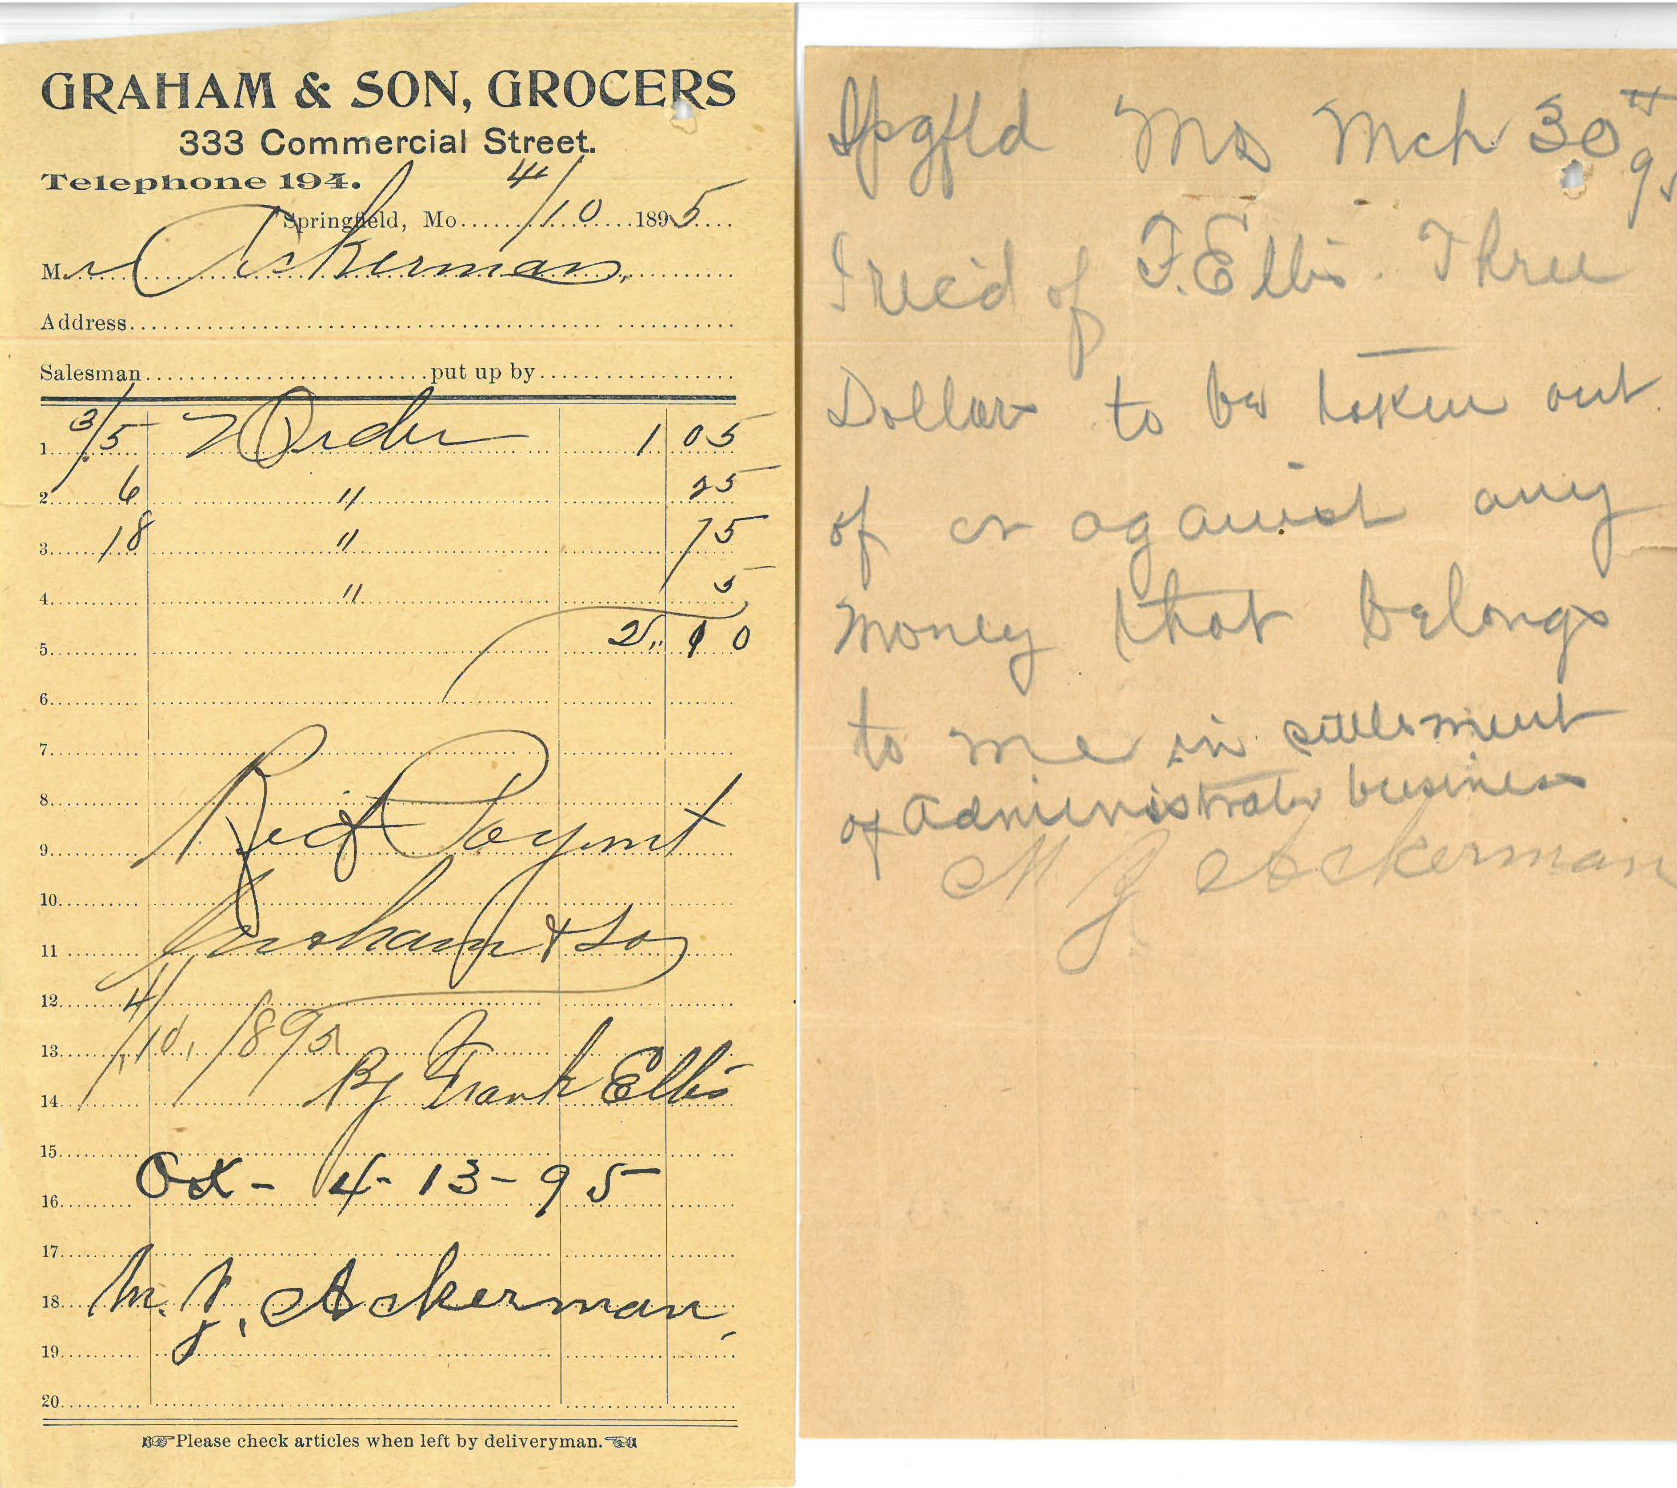 GRAHAM & SON, GROCERS
333 Commercial Street.
Telephone 194.
Springfield, Mo. 4/10 1895
Mr Ackerman,
Address
Salesman put up by
1 3/5 Order 1 05
2 6 " 25
3 18 " 75
4 " 5
5 2.10
6
7
8
9 Rec'd Paymt
10
11 Graham & Son
12
13 4/10, 1895
14 By Frank Ellis
15
16 OK - 4-13-95
17
18 M. J. Ackerman,
19
20
Please check articles when left by deliveryman.
Spgfld Mo Mch 30th 95
I rec'd of F. Ellis. Three
Dollars to be taken out
of or against any
money that belongs
to me in settlement
of administrator business
M J Ackerman